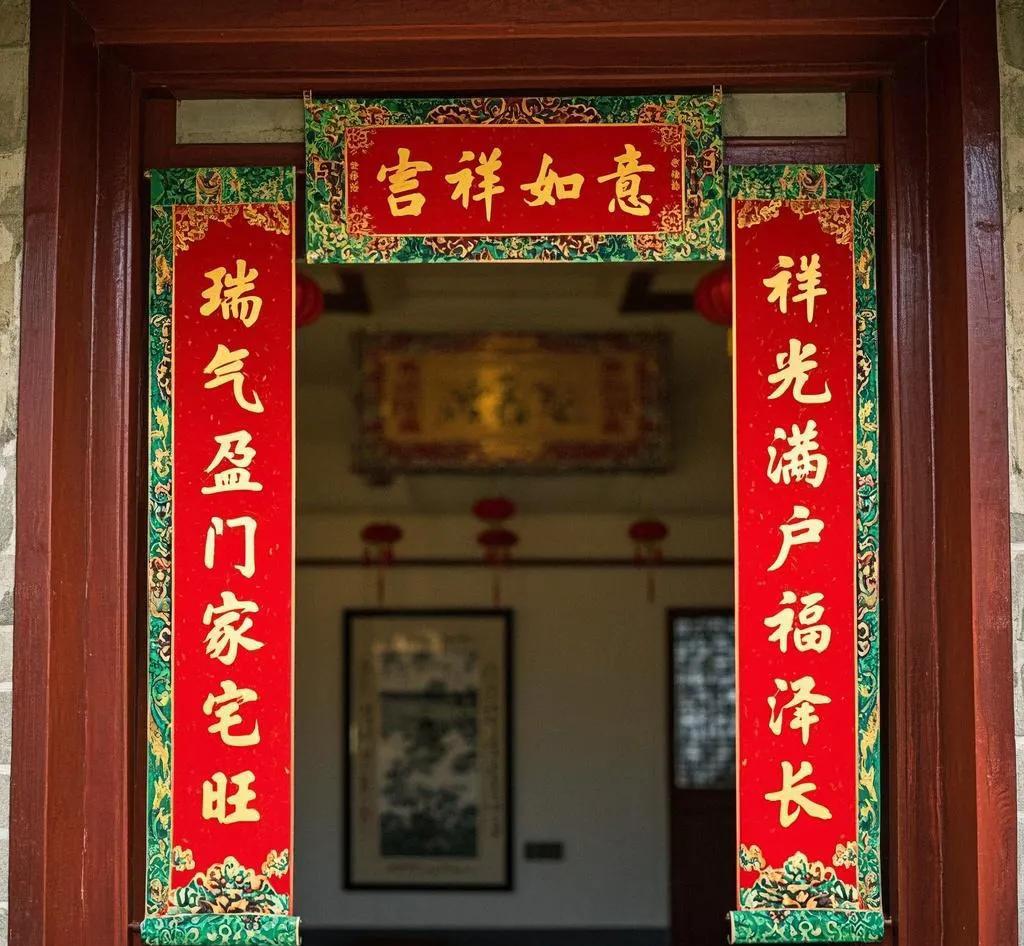 吉祥如意
瑞气盈门家宅旺
祥光满户福泽长